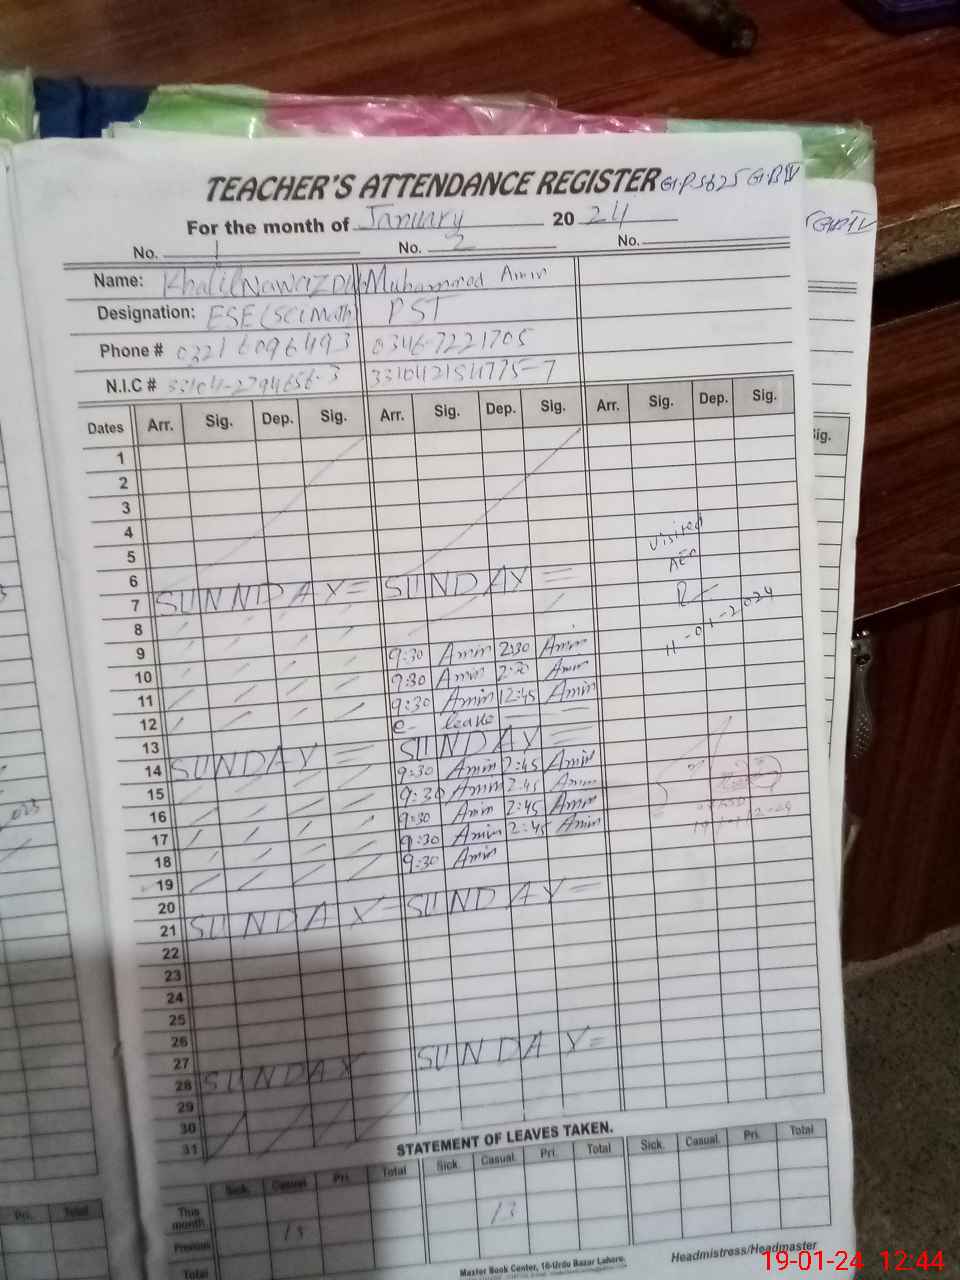 TEACHER'S ATTENDANCE REGISTER GPS 625 GB IV
For the month of January 20 24
No. 1 No. 2 No.
Name: Khalil Nawaz Muhammad Amin
Designation: ESE (Sci Math) PST
Phone # 0321 6096493 0346-7221705
N.I.C # 33104-2794656-3 331042154775-7
Dates Arr. Sig. Dep. Sig. Arr. Sig. Dep. Sig. Arr. Sig. Dep. Sig.
1
2
3
4
5 visited
6 AEO
7 SUNNDAY = SUNDAY =
8 11-01-2024
9 9:30 Amin 2:30 Amin
10 9:30 Amin 2:30 Amin
11 9:30 Amin 12:45 Amin
12 C- leave
13
14 SUNDAY = SUNDAY =
15 9:30 Amin 2:45 Amin
16 9:30 Amin 2:45 Amin
17 9:30 Amin 2:45 Amin
18 9:30 Amin 2:45 Amin
19 9:30 Amin
20
21 SUNDAY = SUNDAY =
22
23
24
25
26
27
28 SUNDAY SUNDAY =
29
30
31
STATEMENT OF LEAVES TAKEN.
Sick. Casual. Pri. Total Sick. Casual. Pri. Total Sick. Casual. Pri. Total
This month
Previous 15 13
Total
Master Book Center, 16-Urdu Bazar Lahore.
Headmistress/Headmaster
GB IV
Sig.
Pri. Total
19-01-24 12:44